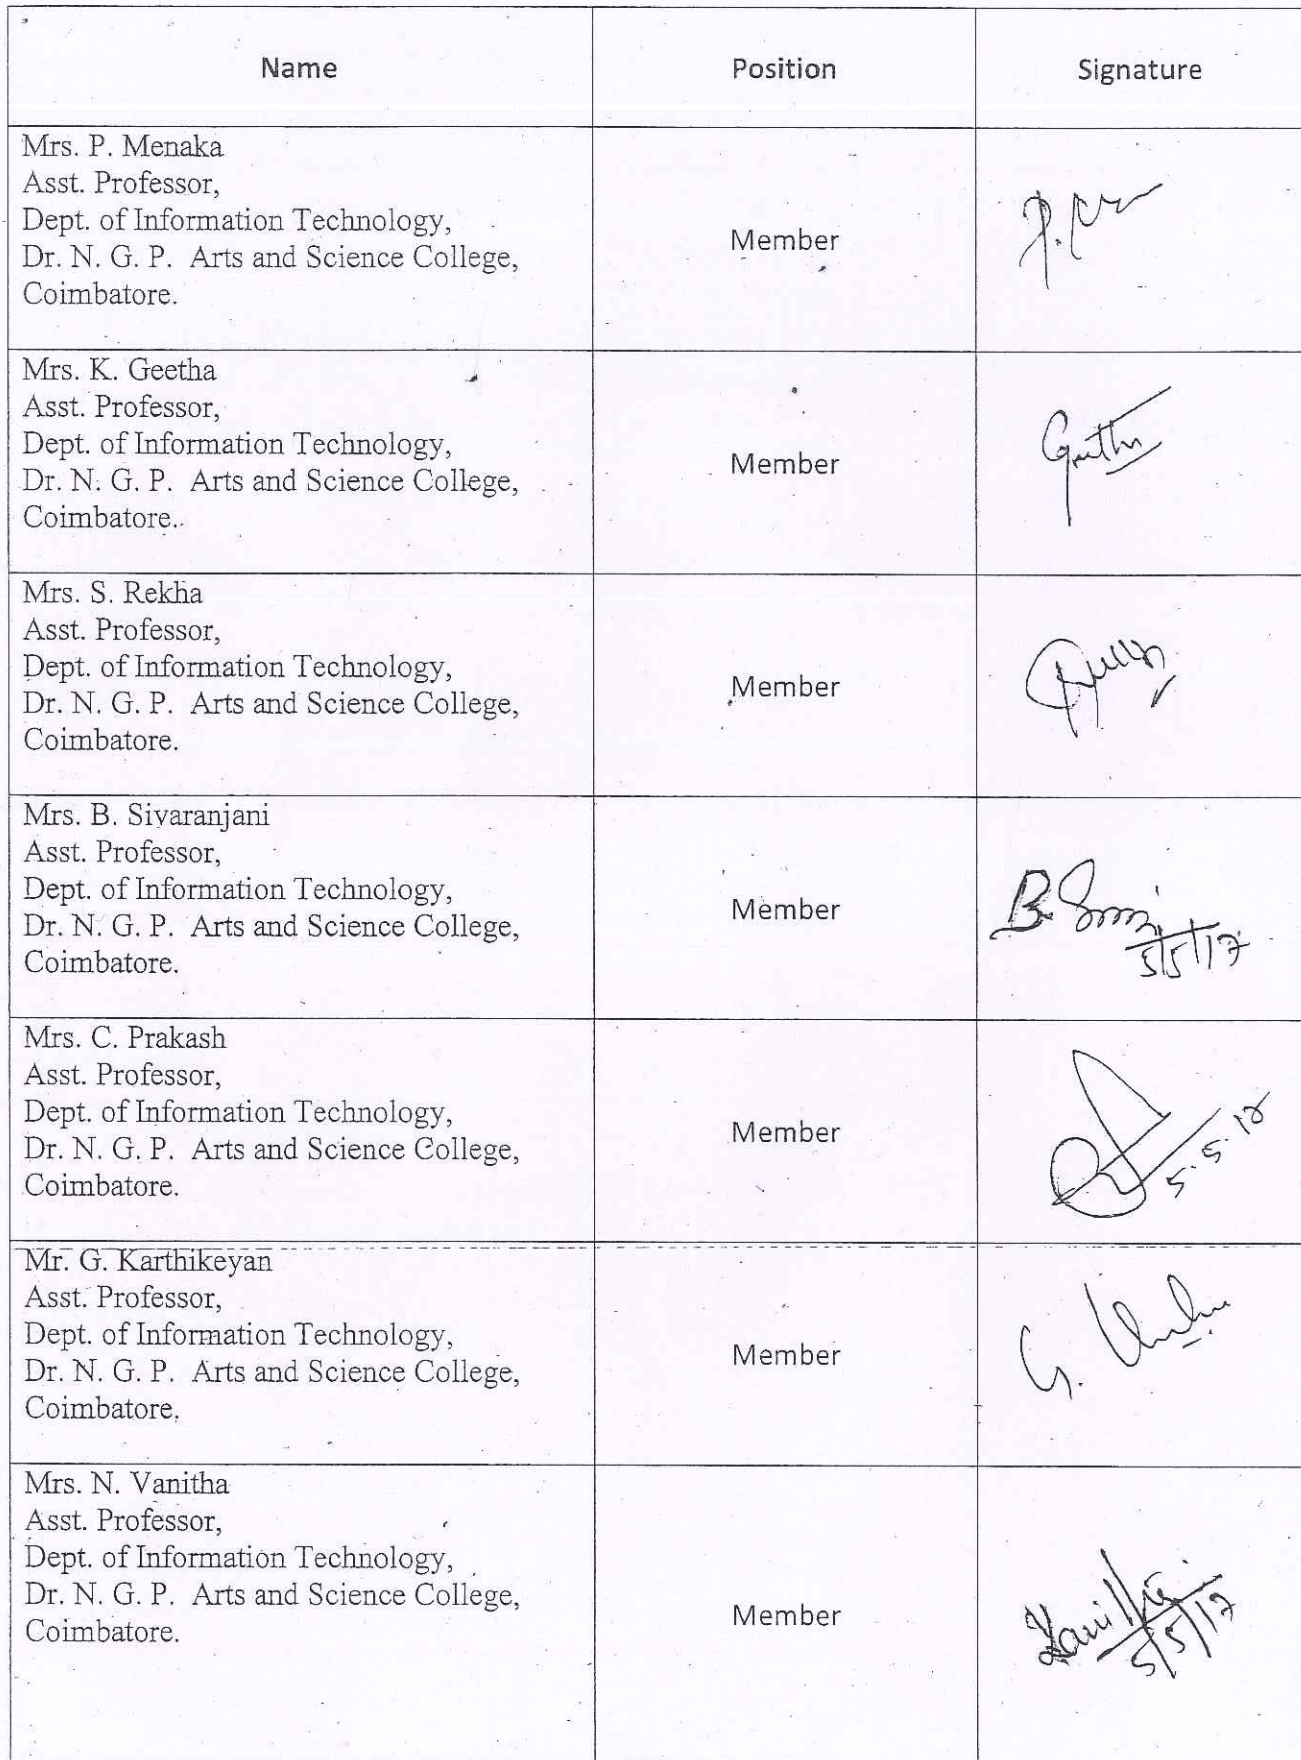 Name Position Signature
Mrs. P. Menaka
Asst. Professor,
Dept. of Information Technology,
Dr. N. G. P. Arts and Science College,
Coimbatore.
Member
Mrs. K. Geetha
Asst. Professor,
Dept. of Information Technology,
Dr. N. G. P. Arts and Science College,
Coimbatore.
Member
Geetha
Mrs. S. Rekha
Asst. Professor,
Dept. of Information Technology,
Dr. N. G. P. Arts and Science College,
Coimbatore.
Member
Mrs. B. Sivaranjani
Asst. Professor,
Dept. of Information Technology,
Dr. N. G. P. Arts and Science College,
Coimbatore.
Member
5/5/17
Mrs. C. Prakash
Asst. Professor,
Dept. of Information Technology,
Dr. N. G. P. Arts and Science College,
Coimbatore.
Member
Mr. G. Karthikeyan
Asst. Professor,
Dept. of Information Technology,
Dr. N. G. P. Arts and Science College,
Coimbatore.
Member
Mrs. N. Vanitha
Asst. Professor,
Dept. of Information Technology,
Dr. N. G. P. Arts and Science College,
Coimbatore.
Member
5/5/17